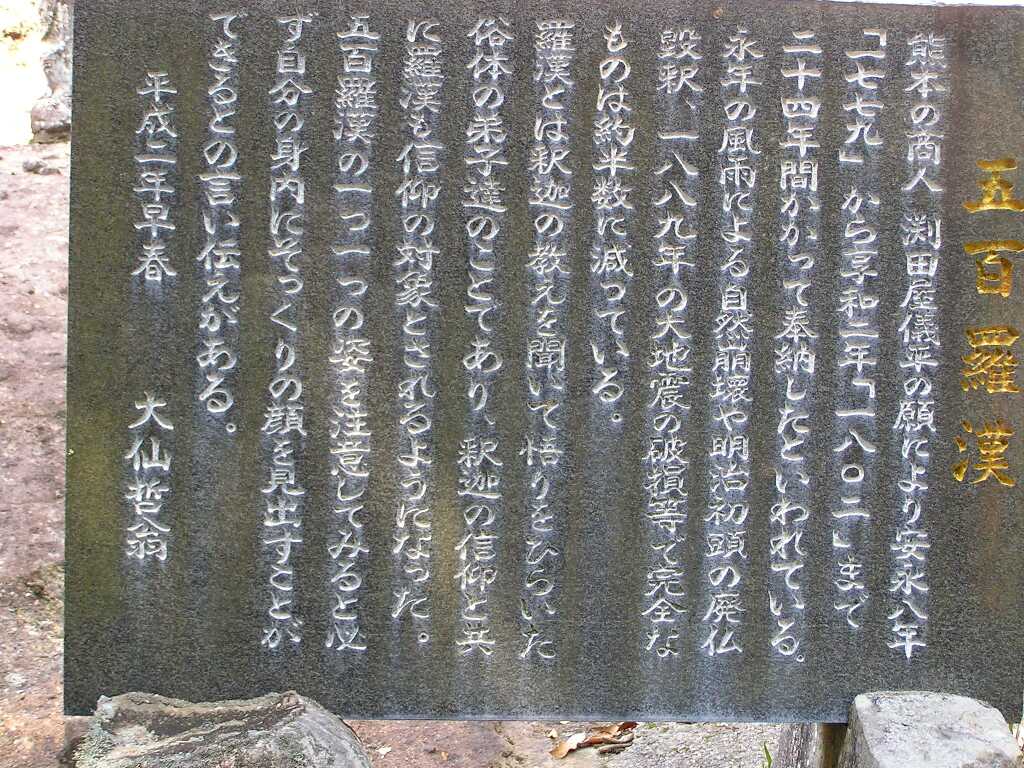 五百羅漢
熊本の商人 渕田屋儀平の願により安永八年
「一七七九」から享和二年「一八〇二」まで
二十四年間かかって奉納したといわれている。
永年の風雨による自然崩壊や明治初頭の廃仏
毀釈、一八八九年の大地震の破損等で完全な
ものは約半数に減っている。
羅漢とは釈迦の教えを聞いて悟りをひらいた
俗体の弟子達のことであり、釈迦の信仰と共
に羅漢も信仰の対象とされるようになった。
五百羅漢の一つ一つの姿を注意してみると必
ず自分の身内にそっくりの顔を見出すことが
できるとの言い伝えがある。
平成二年早春 大仙哲翁